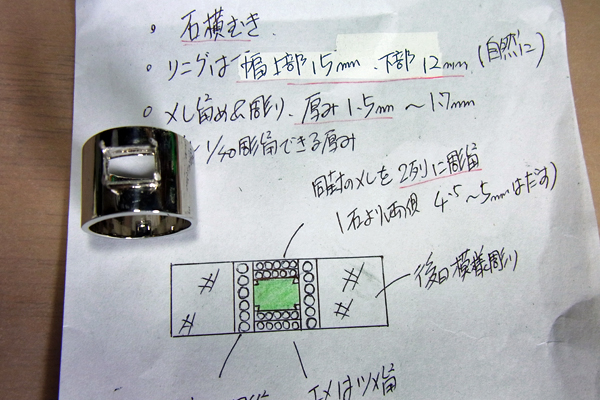 ・石横むき.
・リングは幅上部15mm、下部12mm (自然に)
・メレ留め&彫り、厚み1.5mm～1.7mm
1/40彫留できる厚み
同封のメレを2列に彫留
(石より両側 4.5～5mmはだす)
後日模様彫り
メレはツメ留